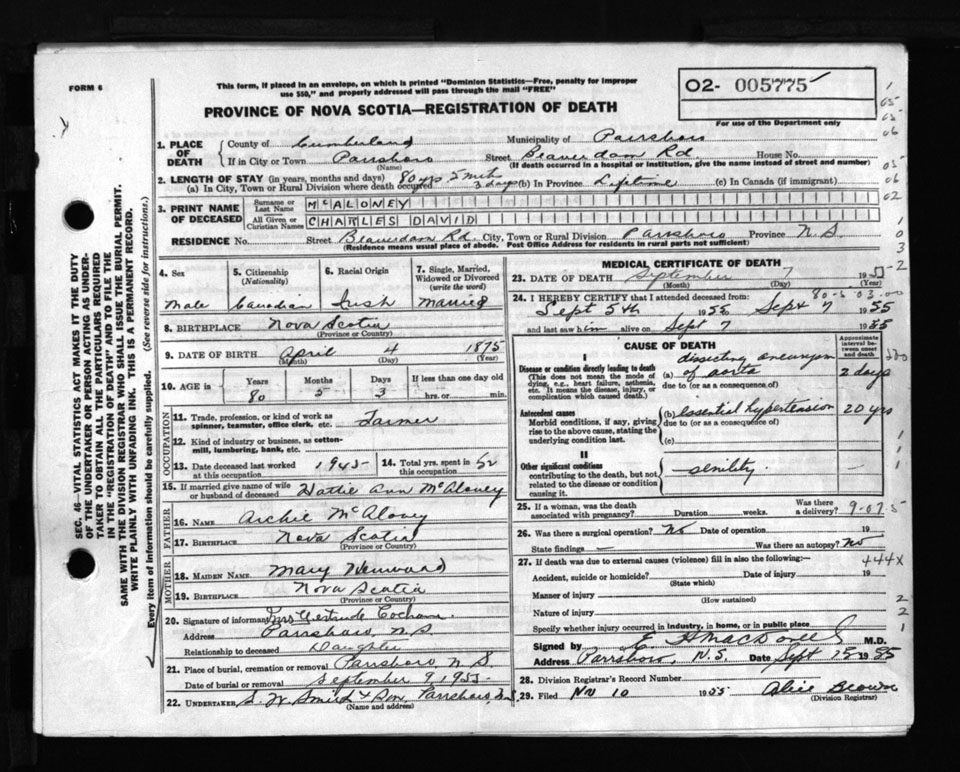 FORM 6
This form, if placed in an envelope, on which is printed "Dominion Statistics—Free, penalty for improper
use $50," and properly addressed will pass through the mail "FREE"
PROVINCE OF NOVA SCOTIA—REGISTRATION OF DEATH
02- 005775
For use of the Department only
SEC. 46—VITAL STATISTICS ACT MAKES IT THE DUTY
OF THE UNDERTAKER OR PERSON ACTING AS UNDER-
TAKER TO OBTAIN ALL THE PARTICULARS REQUIRED
IN THE "REGISTRATION OF DEATH" AND TO FILE THE
SAME WITH THE DIVISION REGISTRAR WHO SHALL ISSUE THE BURIAL PERMIT.
WRITE PLAINLY WITH UNFADING INK. THIS IS A PERMANENT RECORD.
Every item of information should be carefully supplied. (See reverse side for instructions.)
1. PLACE OF DEATH
County of Cumberland Municipality of Parrsboro
If in City or Town Parrsboro Street Beaverdam Rd. House No.
(Name) (If death occurred in a hospital or institution, give the name instead of street and number)
2. LENGTH OF STAY (in years, months and days) 80 yrs 5 mth
(a) In City, Town or Rural Division where death occurred 3 days (b) In Province Lifetime (c) In Canada (if immigrant)
3. PRINT NAME OF DECEASED
Surname or Last Name McALONEY
All Given or Christian Names CHARLES DAVID
RESIDENCE No. Street Beaverdam Rd. City, Town or Rural Division Parrsboro Province N.S.
(Residence means usual place of abode. Post Office Address for residents in rural parts not sufficient)
4. Sex
Male
5. Citizenship
(Nationality)
Canadian
6. Racial Origin
Irish
7. Single, Married,
Widowed or Divorced
(write the word)
Married
8. BIRTHPLACE Nova Scotia
(Province or Country)
9. DATE OF BIRTH April 4 1875
(Month) (Day) (Year)
10. AGE IS
Years Months Days If less than one day old
80 5 3 hrs. or min.
OCCUPATION
11. Trade, profession, or kind of work as
spinner, teamster, office clerk, etc. Farmer
12. Kind of industry or business, as cotton-
mill, lumbering, bank, etc.
13. Date deceased last worked
at this occupation 1945
14. Total yrs. spent in
this occupation 52
15. If married give name of wife
or husband of deceased Hattie Ann McAloney
FATHER
16. NAME Archie McAloney
17. BIRTHPLACE Nova Scotia
(Province or Country)
MOTHER
18. MAIDEN NAME Mary
19. BIRTHPLACE Nova Scotia
(Province or Country)
20. Signature of informant Mrs Gertrude Cochrane
Address Parrsboro, N.S.
Relationship to deceased Daughter
21. Place of burial, cremation or removal Parrsboro, N.S.
Date of burial or removal September 9, 1955
22. UNDERTAKER S. W. Smith & Son, Parrsboro, N.S.
(Name and address)
MEDICAL CERTIFICATE OF DEATH
23. DATE OF DEATH September 7 1955
(Month) (Day)
24. I HEREBY CERTIFY that I attended deceased from:
Sept 5th 1955 Sept 7 1955
and last saw him alive on Sept 7 1955
CAUSE OF DEATH
Approximate
interval between
onset
and death
I
Disease or condition directly leading to death
(This does not mean the mode of
dying, e.g., heart failure, asthenia,
etc. It means the disease, injury, or
complication which caused death.)
(a) dissecting aneurysm of aorta 2 days
due to (or as a consequence of)
Antecedent causes
Morbid conditions, if any, giving
rise to the above cause, stating the
underlying condition last.
(b) essential hypertension 20 yrs
due to (or as a consequence of)
(c)
II
Other significant conditions
contributing to the death, but not
related to the disease or condition
causing it.
senility.
25. If a woman, was the death
associated with pregnancy? Duration weeks. Was there
a delivery?
9-07.5
26. Was there a surgical operation? No Date of operation 19
State findings — Was there an autopsy? No
27. If death was due to external causes (violence) fill in also the following:—
444X
Accident, suicide or homicide? Date of injury 19
(State which)
Manner of injury
(How sustained)
Nature of injury
Specify whether injury occurred in industry, in home, or in public place
Signed by E. MacDonell M.D.
Address Parrsboro, N.S. Date Sept 1955
28. Division Registrar's Record Number
29. Filed Nov 10 1955 Alice Brown
(Division Registrar)